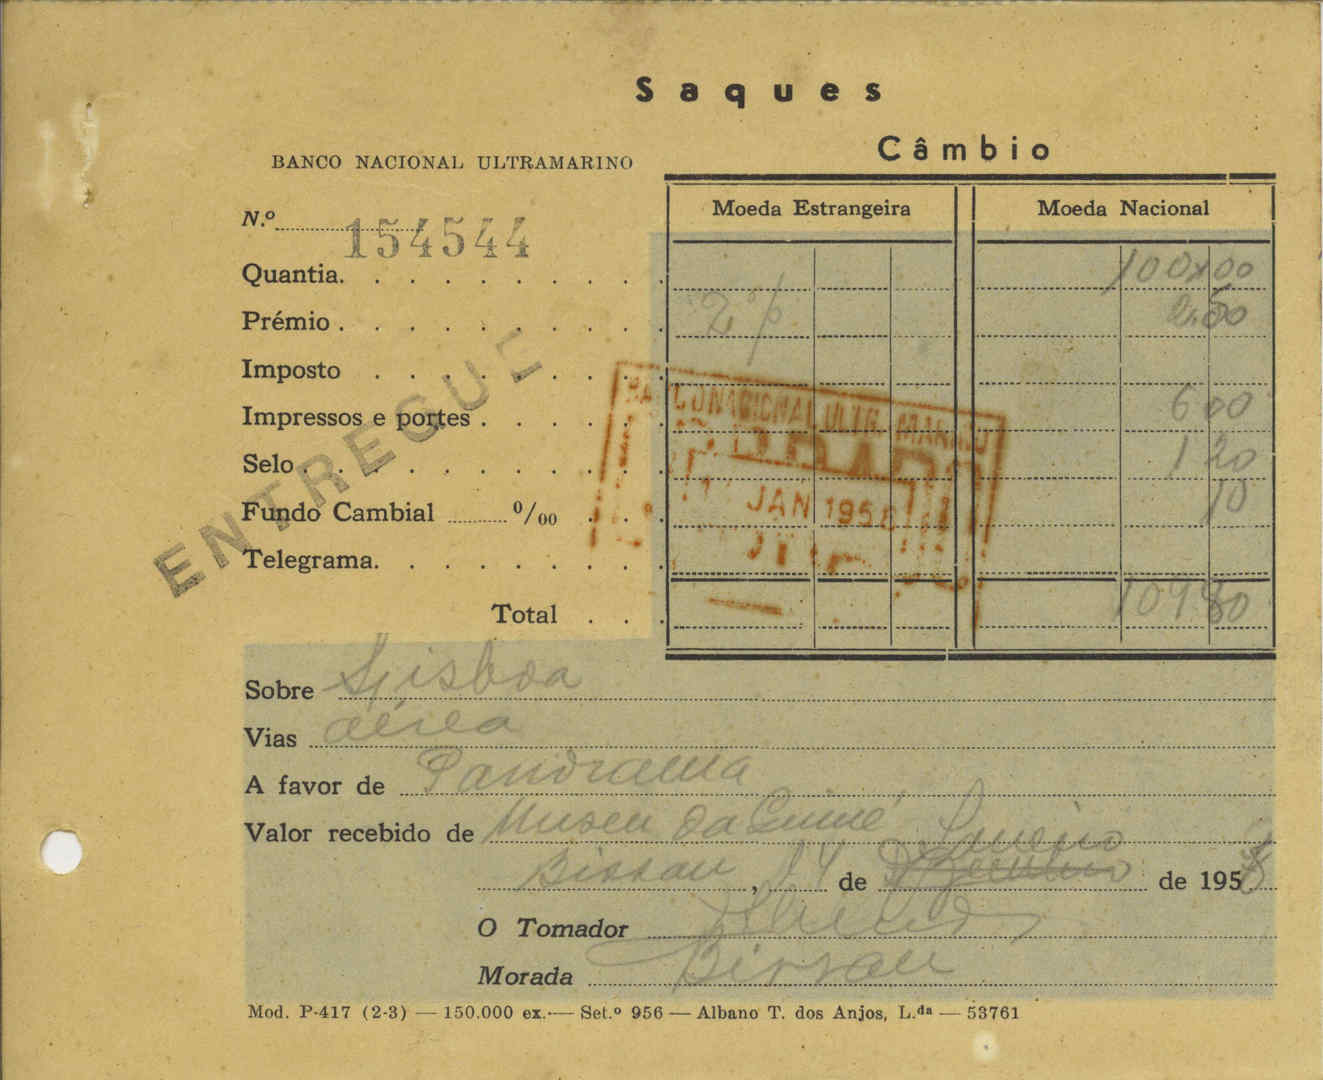 Saques
Câmbio
BANCO NACIONAL ULTRAMARINO
Moeda Estrangeira Moeda Nacional
N.º 154544
Quantia. . . . . . . . . 100x00
Prémio . . . . . . . . . 2% 2,50
Imposto . . . . . . .
Impressos e portes . . . . . 600
Selo . . . . . . . . . . 120
Fundo Cambial ......... º/ºº . . . 10
Telegrama. . . . . . . . .
Total . . . 109 80
ENTREGUE
JAN 1958
Sobre Lisboa
Vias aérea
A favor de Panorama
Valor recebido de Museu da Guiné
Janeiro
Bissau, 14 de Dezembro de 1958
O Tomador
Morada Bissau
Mod. P-417 (2-3) — 150.000 ex. — Set.º 956 — Albano T. dos Anjos, L.da — 53761